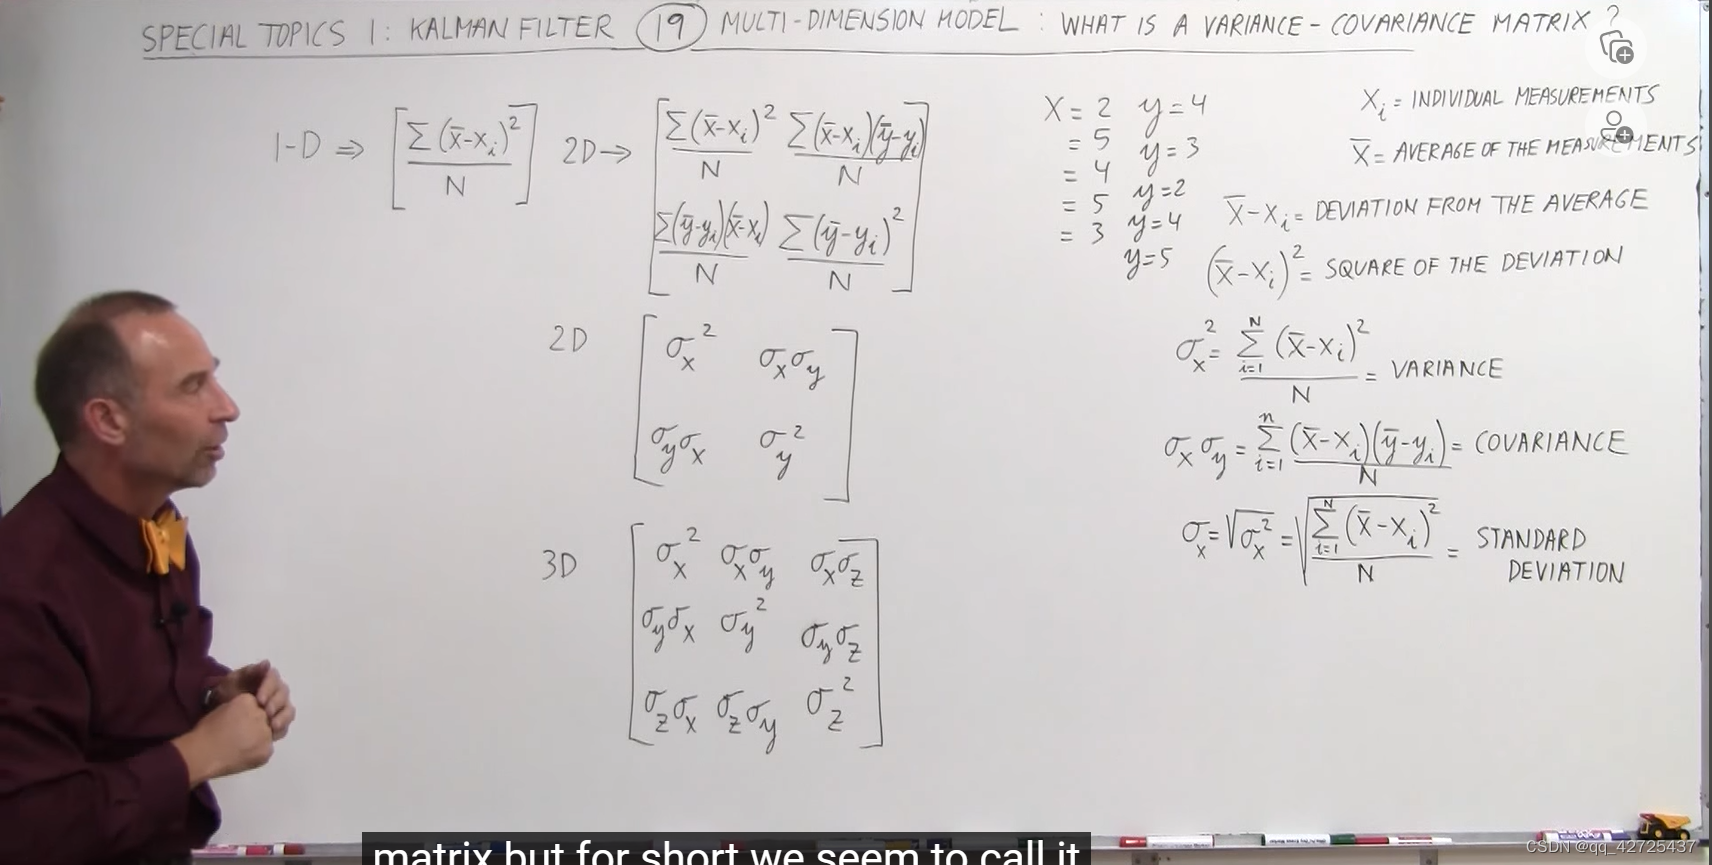 SPECIAL TOPICS 1: KALMAN FILTER (19) MULTI-DIMENSION MODEL : WHAT IS A VARIANCE - COVARIANCE MATRIX ?
1-D ⇒ [Σ(x̄-xᵢ)² / N] 2D→ [Σ(x̄-xᵢ)² / N Σ(x̄-xᵢ)(ȳ-yᵢ) / N
Σ(ȳ-yᵢ)(x̄-xᵢ) / N Σ(ȳ-yᵢ)² / N]
2D [σx² σxσy
σyσx σy²]
3D [σx² σxσy σxσz
σyσx σy² σyσz
σzσx σzσy σz²]
X = 2 y = 4
= 5 y = 3
= 4 y = 2
= 5 y = 4
= 3 y = 5
Xᵢ = INDIVIDUAL MEASUREMENTS
X̄ = AVERAGE OF THE MEASUREMENTS
X̄-Xᵢ = DEVIATION FROM THE AVERAGE
(X̄-Xᵢ)² = SQUARE OF THE DEVIATION
σx² = Σ i=1 N (X̄-Xᵢ)² / N = VARIANCE
σxσy = Σ i=1 n (X̄-Xᵢ)(ȳ-yᵢ) / N = COVARIANCE
σx = √σx² = √(Σ i=1 N (X̄-Xᵢ)² / N) = STANDARD
DEVIATION
matrix but for short we seem to call it
CSDN @qq_42725437